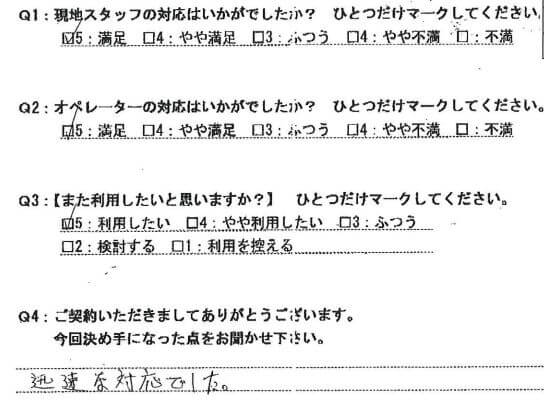 Q1：現地スタッフの対応はいかがでしたか？　ひとつだけマークしてください。
☑5：満足　□4：やや満足　□3：ふつう　□4：やや不満　□：不満
Q2：オペレーターの対応はいかがでしたか？　ひとつだけマークしてください。
☑5：満足　□4：やや満足　□3：ふつう　□4：やや不満　□：不満
Q3：【また利用したいと思いますか？】　ひとつだけマークしてください。
☑5：利用したい　□4：やや利用したい　□3：ふつう
□2：検討する　□1：利用を控える
Q4：ご契約いただきましてありがとうございます。
今回決め手になった点をお聞かせ下さい。
迅速な対応でした。